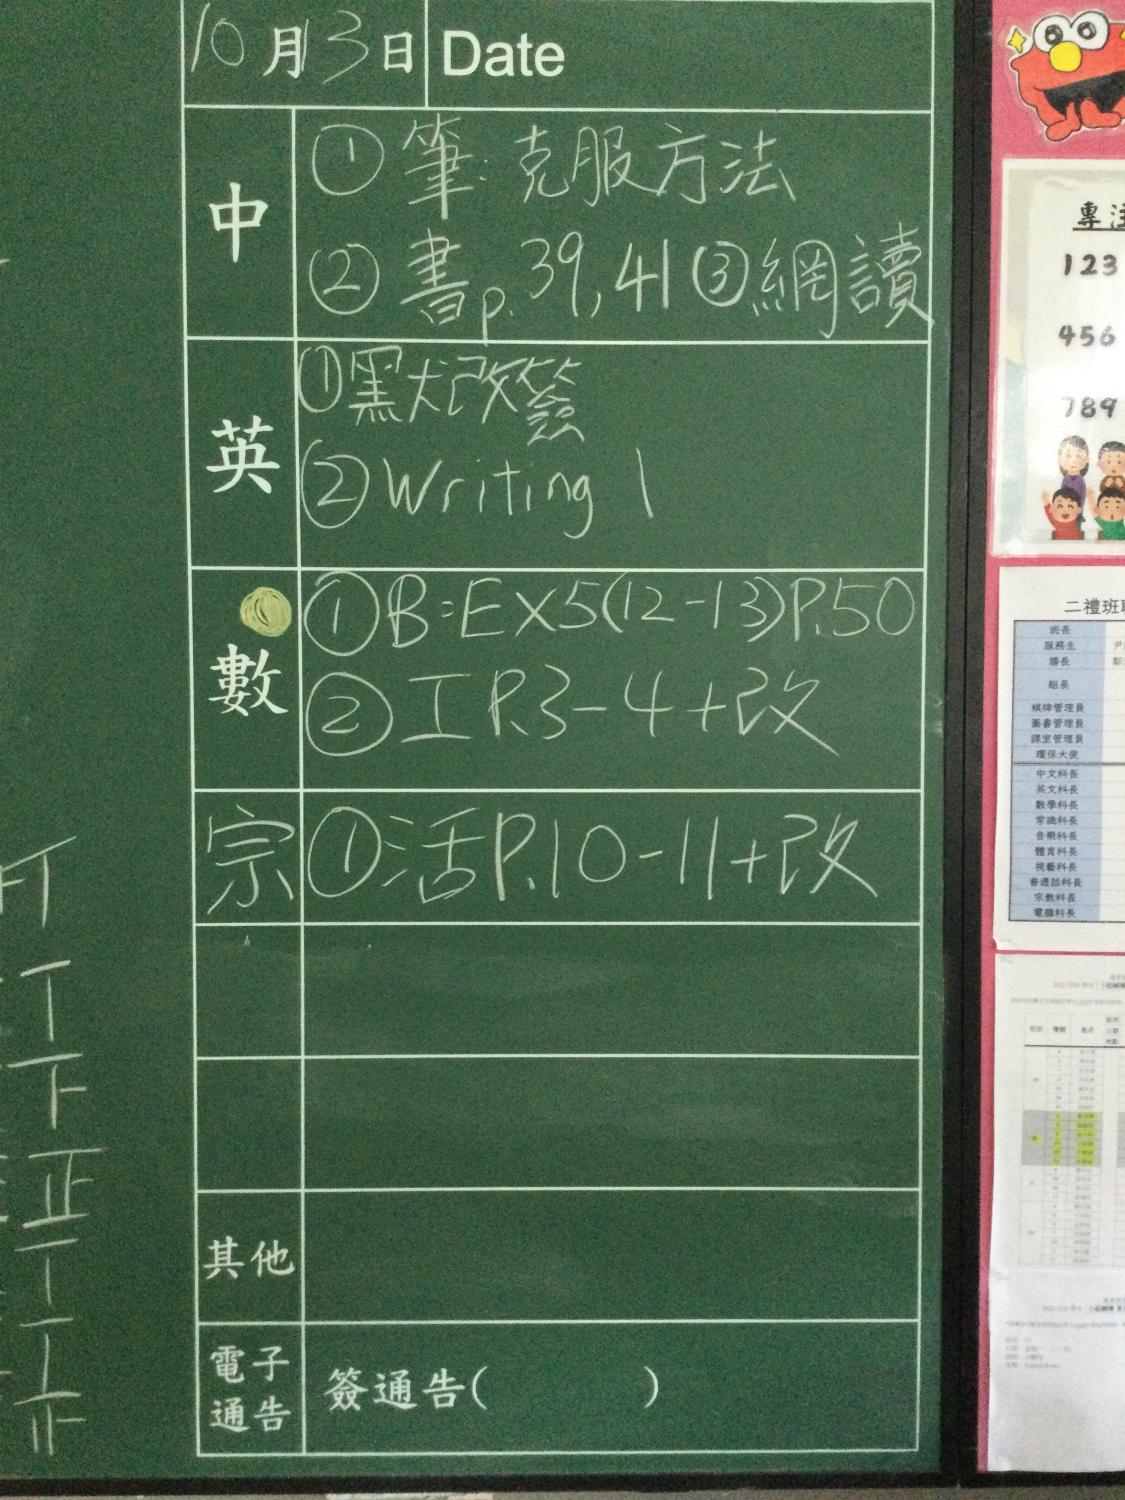 10月13日 Date
中
① 筆:克服方法
② 書p.39,41 ③網讀
英
①黑犬改簽
②Writing 1
數
①B:EX5(12-13)P.50
②工P.3-4+改
宗
①活P.10-11+改
其他
電子
通告
簽通告( )
專注
123
456
789
二禮班
班長
服務生
膳長
組長
棋牌管理員
圖書管理員
課室管理員
環保大使
中文科長
英文科長
數學科長
常識科長
音樂科長
體育科長
視藝科長
普通話科長
宗教科長
電腦科長